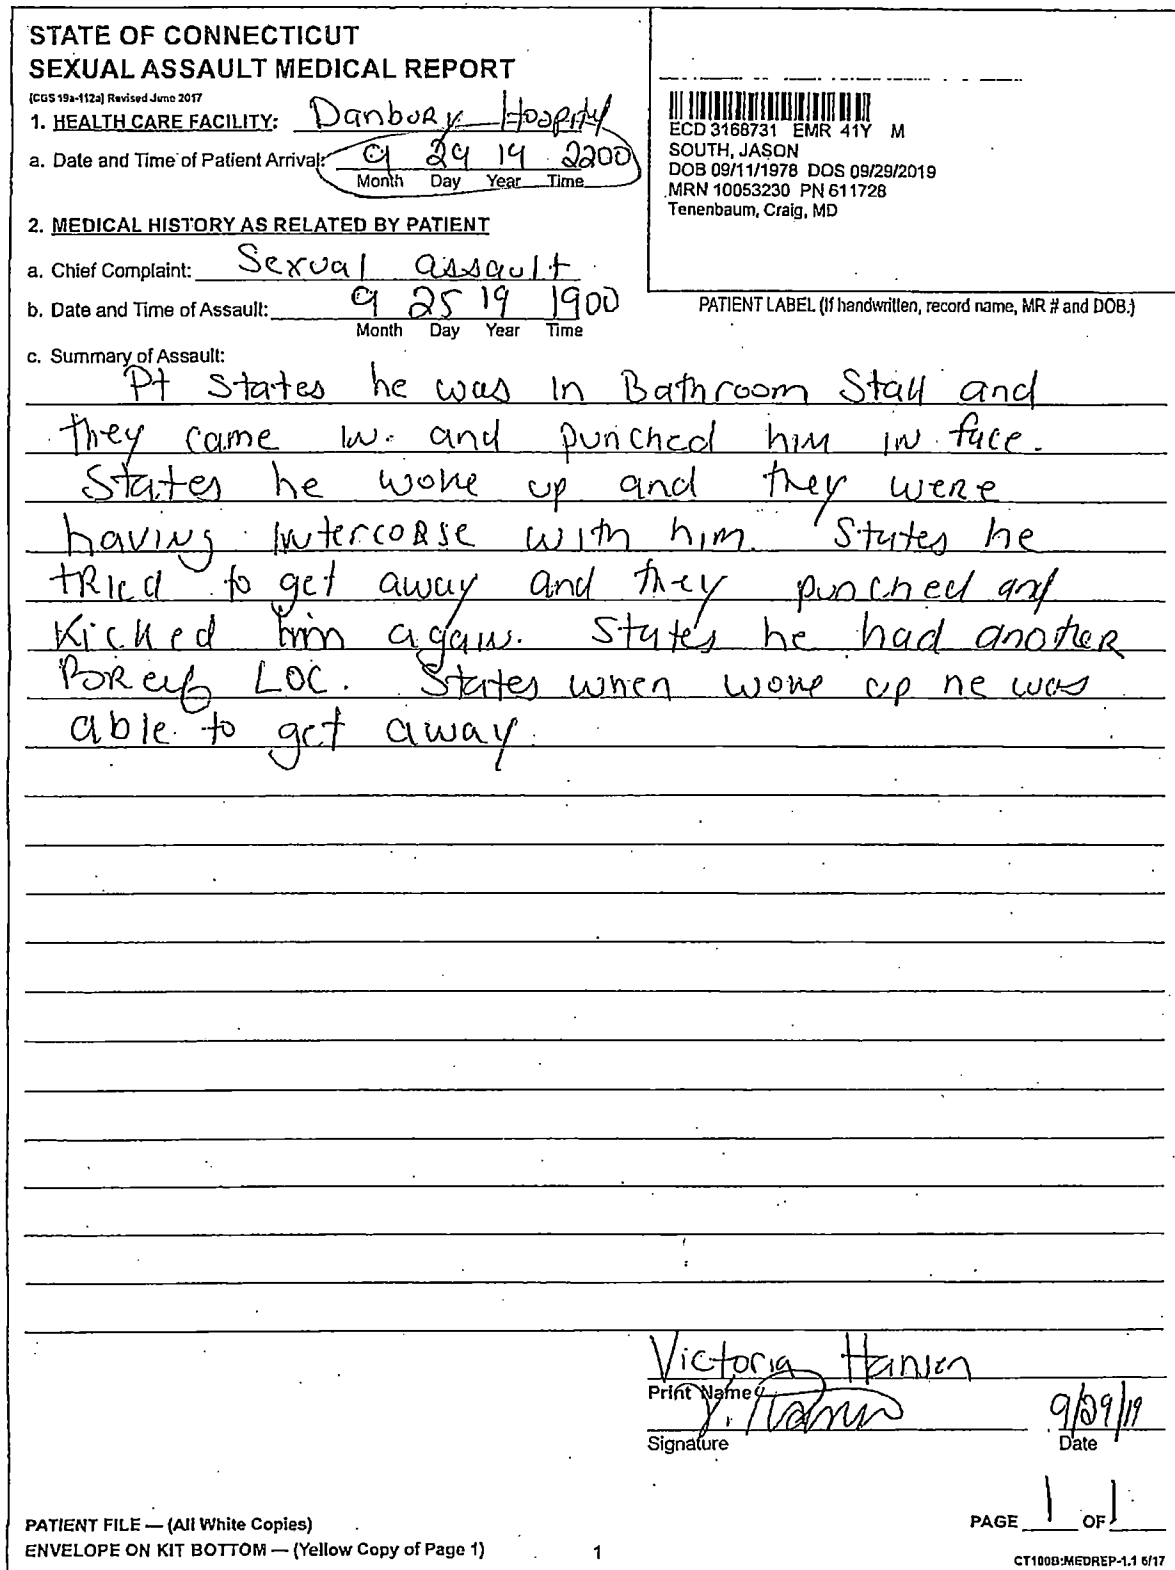 STATE OF CONNECTICUT
SEXUAL ASSAULT MEDICAL REPORT
(CGS 19a-112a) Revised June 2017
1. HEALTH CARE FACILITY: Danbury Hospital
a. Date and Time of Patient Arrival: 9 29 19 2200
Month Day Year Time
ECD 3168731 EMR 41Y M
SOUTH, JASON
DOB 09/11/1978 DOS 09/29/2019
MRN 10053230 PN 611728
Tenenbaum, Craig, MD
PATIENT LABEL (If handwritten, record name, MR # and DOB.)
2. MEDICAL HISTORY AS RELATED BY PATIENT
a. Chief Complaint: Sexual assault
b. Date and Time of Assault: 9 25 19 1900
Month Day Year Time
c. Summary of Assault:
Pt States he was in Bathroom Stall and
they came in. and punched him in face.
States he woke up and they were
having intercorse with him. States he
tried to get away and they punched and
Kicked him again. States he had another
Brief LOC. States when woke up he was
able to get away.
Victoria Hansen
Print Name
V. Hansen
Signature
9/29/19
Date
PAGE 1 OF 1
PATIENT FILE — (All White Copies)
ENVELOPE ON KIT BOTTOM — (Yellow Copy of Page 1)
1
CT100B:MEDREP-1.1 6/17